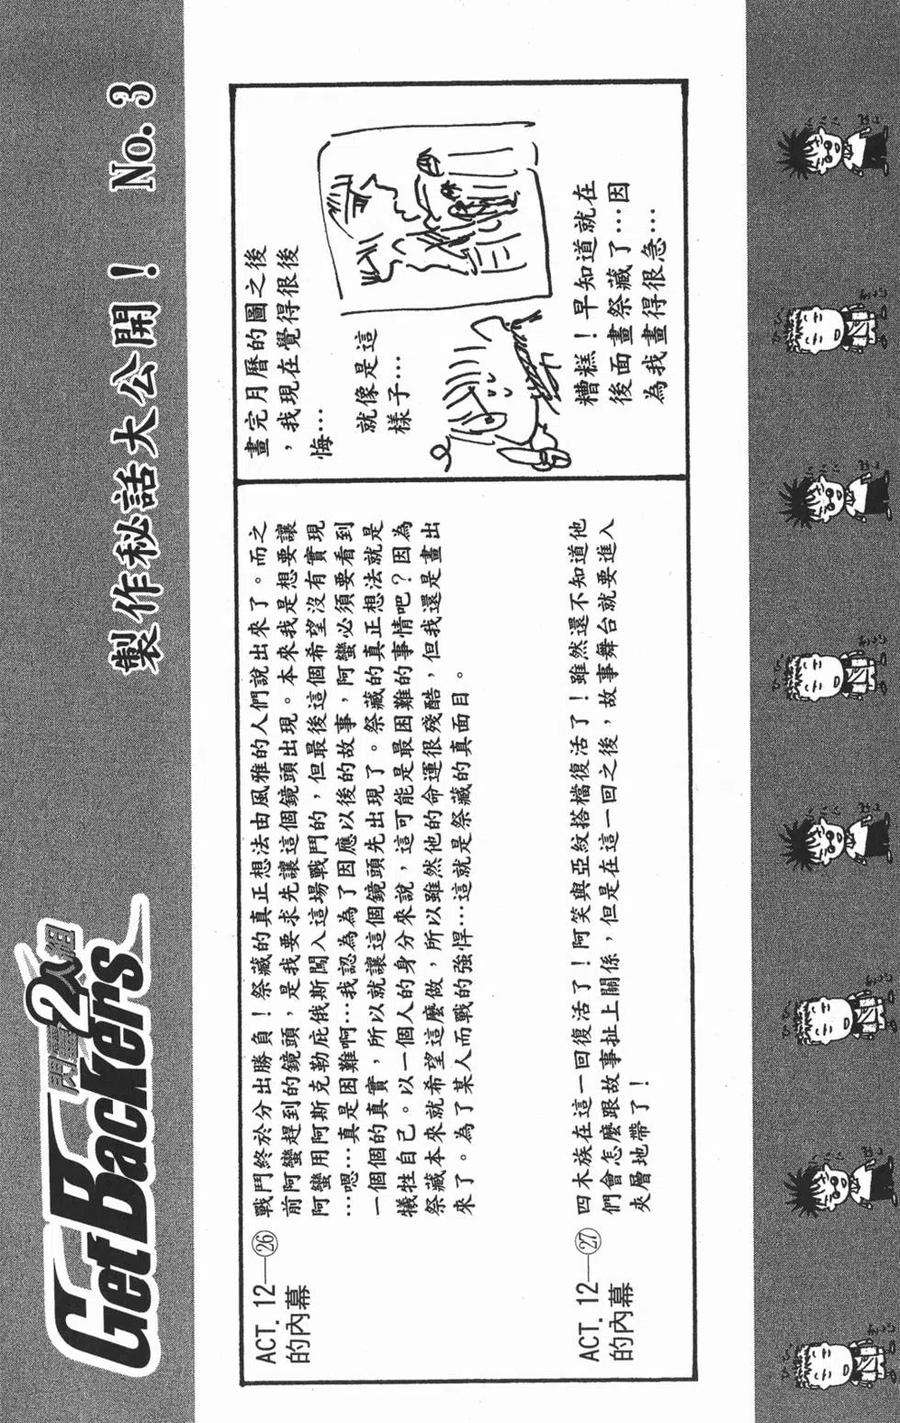 GetBackers
閃電2人組
製作秘話大公開！ No. 3
ACT. 12—㉖
的內幕
戰鬥終於分出勝負！祭藏的真正想法由風雅的人們說出來了。而之
前阿蠻趕到的鏡頭，是我要求先讓這個鏡頭出現。本來我是想要讓
阿蠻用阿斯克勒庇俄斯闖入這場戰鬥的，但最後這個希望沒有實現
…嗯…真是困難啊…我認為為了因應以後的故事，阿蠻必須要看到
一個個的真實，所以就讓這個鏡頭先出現了。祭藏的真正想法就是
犧牲自己。以一個人的身分來說，這可能是最困難的事情吧？因為
祭藏本來就希望這麼做，所以雖然他的命運很殘酷，但我還是畫出
來了。為了某人而戰的強悍…這就是祭藏的真面目。
ACT. 12—㉗
的內幕
四木族在這一回復活了！阿笑與亞紋搭檔復活了！雖然還不知道他
們會怎麼跟故事扯上關係，但是在這一回之後，故事舞台就要進入
夾層地帶了！
畫完月曆的圖之後
，我現在覺得很後
悔…
就像是這
樣子…
糟糕！早知道就在
後面畫祭藏了…因
為我畫得很急…